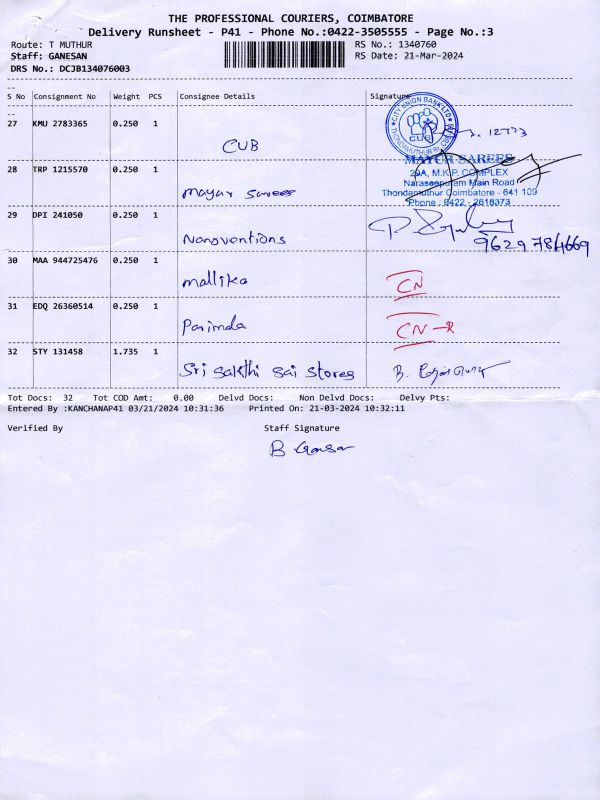 THE PROFESSIONAL COURIERS, COIMBATORE
Delivery Runsheet - P41 - Phone No.:0422-3505555 - Page No.:3
Route: T MUTHUR
RS No.: 1340760
Staff: GANESAN
RS Date: 21-Mar-2024
DRS No.: DCJB134076003
S No Consignment No Weight PCS Consignee Details Signature
27 KMU 2783365 0.250 1
CUB
CITY UNION BANK LTD
CUB
28 TRP 1215570 0.250 1
Mayur Sarees
MAYUR SAREES
29A, M.K.P. COMPLEX
Naraseepuram Main Road
Thondamuthur Coimbatore - 641 109
Phone : 0422 - 2618373
29 DPI 241050 0.250 1
Nanoventions
9629784669
30 MAA 944725476 0.250 1
mallika
CN
31 EDQ 26360514 0.250 1
Parimala
CN-R
32 STY 131458 1.735 1
Sri Sakthi Sai Stores
Tot Docs: 32 Tot COD Amt: 0.00 Delvd Docs: Non Delvd Docs: Delvy Pts:
Entered By :KANCHANAP41 03/21/2024 10:31:36 Printed On: 21-03-2024 10:32:11
Verified By Staff Signature